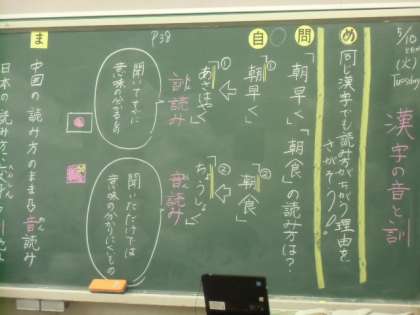 5/10
(火)
Tuesday
漢字の音と訓
め
同じ漢字でも読み方がちがう理由を
さがそう!
問
「朝早く」「朝食」の読み方は?
自
①
朝早く
②
朝食
①
あさはやく
②
ちょうしょく
訓読み
音読み
P38
聞いてすぐに
意味の分かるもの
聞いただけでは
意味の分かりにくいもの
ま
中国の読み方のまま 音読み
おん
日本の読み方